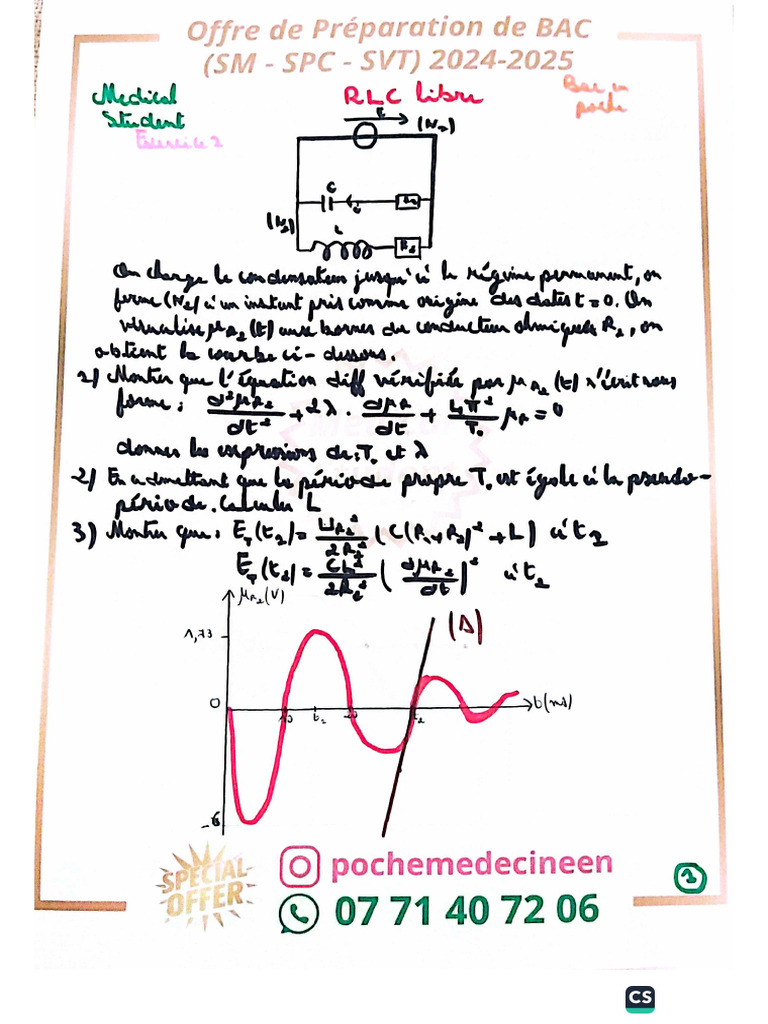 Offre de Préparation de BAC
(SM - SPC - SVT) 2024-2025
Medical
Student
Exercice 2
RLC libre
Bac in
poche
E
(N1)
C
i
R2
(N2)
L
On charge le condensateur jusqu'à le régime permanent, on
ferme (N2) à un instant pris comme origine des dates t = 0. On
visualise μR2(t) aux bornes du conducteur ohmiques R2, on
obtient la courbe ci-dessous.
1) Montrer que l'équation diff vérifiée par μR2(t) s'écrit sous
forme : d²μR2/dt² + 2λ . dμR/dt + 4π²/T0 μR = 0
donner les expressions de : T0 et λ
2) En admettant que la période propre T0 est égale à la pseudo-
période. Calculer L
3) Montrer que : ET(t1) = UR2²/2R2² (C(R1+R2)² + L) à t1
ET(t2) = CL²/2R2² (dμR2/dt)² à t2
μR2(V)
1,73
(Δ)
0
10
t1
20
t2
t(ms)
-6
SPECIAL
OFFER
pochemedecineen
07 71 40 72 06
1
CS